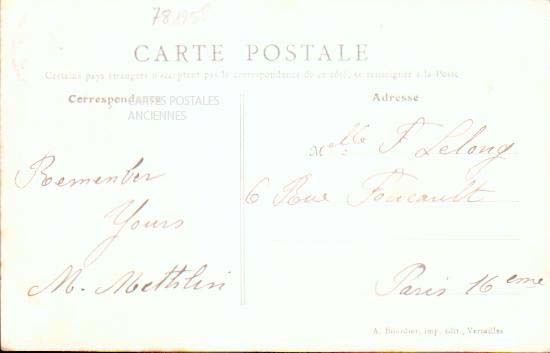 781958
CARTE POSTALE
Certains pays étrangers n'acceptant pas la correspondance de ce côté, se renseigner à la Poste
Correspondance
CARTES POSTALES
ANCIENNES
Remember
Yours
M.
Adresse
Melle F Lelong
6 Rue Foucault
Paris 16eme
A. Bourdier, imp. édit., Versailles